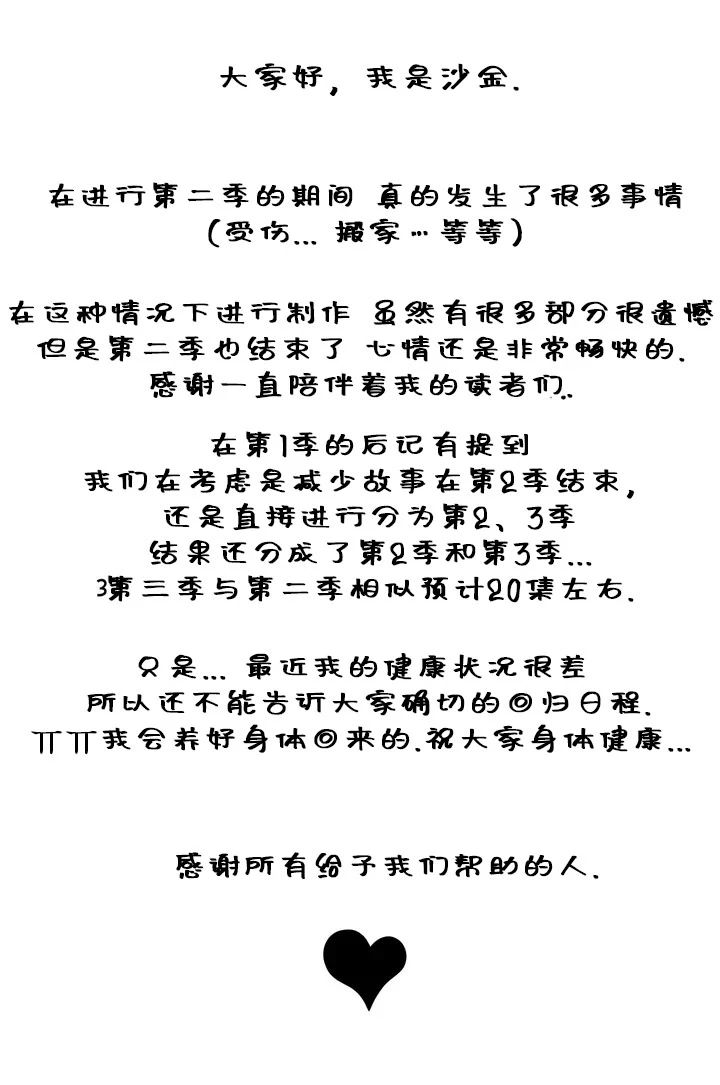 大家好，我是沙金.
在进行第二季的期间 真的发生了很多事情
(受伤... 搬家…等等)
在这种情况下进行制作 虽然有很多部分很遗憾
但是第二季也结束了 心情还是非常畅快的.
感谢一直陪伴着我的读者们.
在第1季的后记有提到
我们在考虑是减少故事在第2季结束,
还是直接进行分为第2、3季
结果还分成了第2季和第3季...
3第三季与第二季相似预计20集左右.
只是... 最近我的健康状况很差
所以还不能告诉大家确切的回归日程.
ㅠㅠ我会养好身体回来的.祝大家身体健康...
感谢所有给予我们帮助的人.